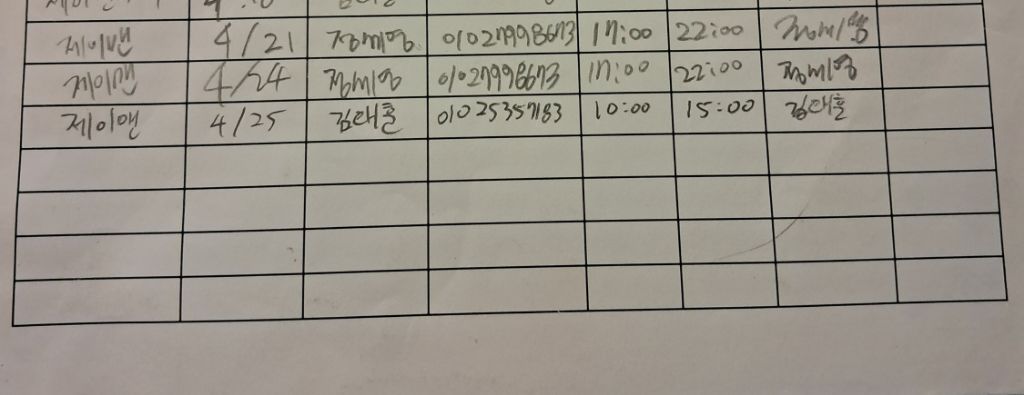 제이맨 4/21 정미영 01027998673 17:00 22:00 정미영
제이맨 4/24 정미영 01027998673 17:00 22:00 정미영
제이맨 4/25 김태훈 01025357183 10:00 15:00 김태훈